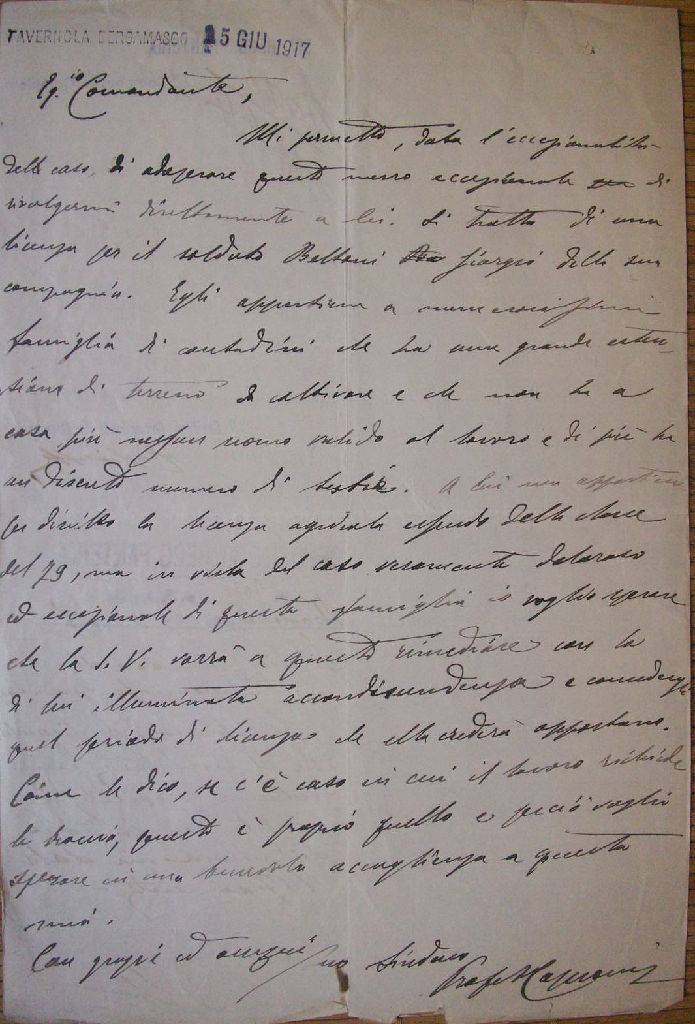 TAVERNOLA BERGAMASCO 15 GIU 1917
Eg.io Comandante,
Mi permetto, data l'eccezionalità
del caso, di adoperare questo mezzo eccezionale di
rivolgermi direttamente a lei. Si tratta di una
licenza per il soldato Bettoni Giorgio della sua
compagnia. Egli appartiene a numerosissima
famiglia di contadini che ha una grande esten-
sione di terreno da coltivare e che non ha a
casa più nessun uomo valido al lavoro e di più ha
un discreto numero di bestie. A lui non appartiene
per diritto la licenza agricola essendo della classe
del 79, ma in vista del caso veramente doloroso
ed eccezionale di questa famiglia io voglio sperare
che la S. V. vorrà a questo rimediare con la
di lui illuminata accondiscendenza e concedergli
quel periodo di licenza che ella crederà opportuno.
Come le dico, se c'è caso in cui il lavoro richiede
le braccia, questo è proprio quello e perciò voglio
sperare in una benevola accoglienza a questa
mia.
Con grazie ed ossequi Sindaco
Prof.